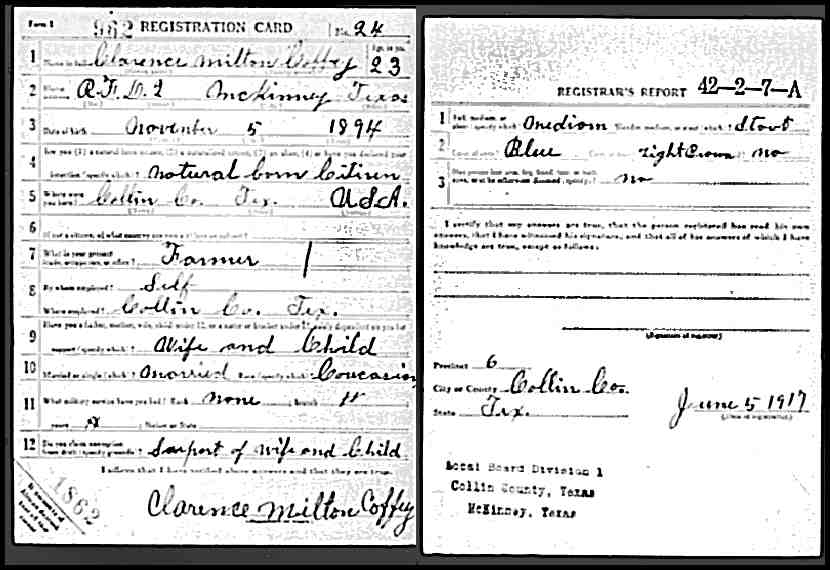 Form 1 962 REGISTRATION CARD No. 24
1 Name in full Clarence Milton Coffey Age, in yrs. 23
2 Home R.F.D. 2 McKinney Texas
3 Date of birth November 5 1894
4 Are you (1) a natural born citizen, (2) a naturalized citizen, (3) an alien, (4) or have you declared your
intention (specify which)? natural born Citizen
5 Where were you born? Collin Co. Tex. U.S.A.
6 If not a citizen, of what country are you a citizen or subject?
7 What is your present trade, occupation, or office? Farmer
8 By whom employed? Self
Where employed? Collin Co. Tex.
9 Have you a father, mother, wife, child under 12, or a sister or brother under 12, solely dependent on you for
support (specify which)? Wife and Child
10 Married or single (which)? Married Race (specify which)? Coucasin
11 What military service have you had? Rank none ; branch
years ; Nation or State
12 Do you claim exemption from draft (specify grounds)? Saport of wife and Child
I affirm that I have verified above answers and that they are true.
1862
Clarence Milton Coffey
REGISTRAR'S REPORT 42-2-7-A
1 Tall, medium, or short (specify which)? mediom Slender, medium, or stout (which)? Stout
2 Color of eyes? Blue Color of hair? light Brown Bald? no
3 Has person lost arm, leg, hand, foot, or both eyes, or is he otherwise disabled (specify)? no
I certify that my answers are true, that the person registered has read his own
answers, that I have witnessed his signature, and that all of his answers of which I have
knowledge are true, except as follows:
(Signature of registrar)
Precinct 6
City or County Collin Co.
State Tex.
June 5 1917
(Date of registration)
Local Board Division 1
Collin County, Texas
McKinney, Texas